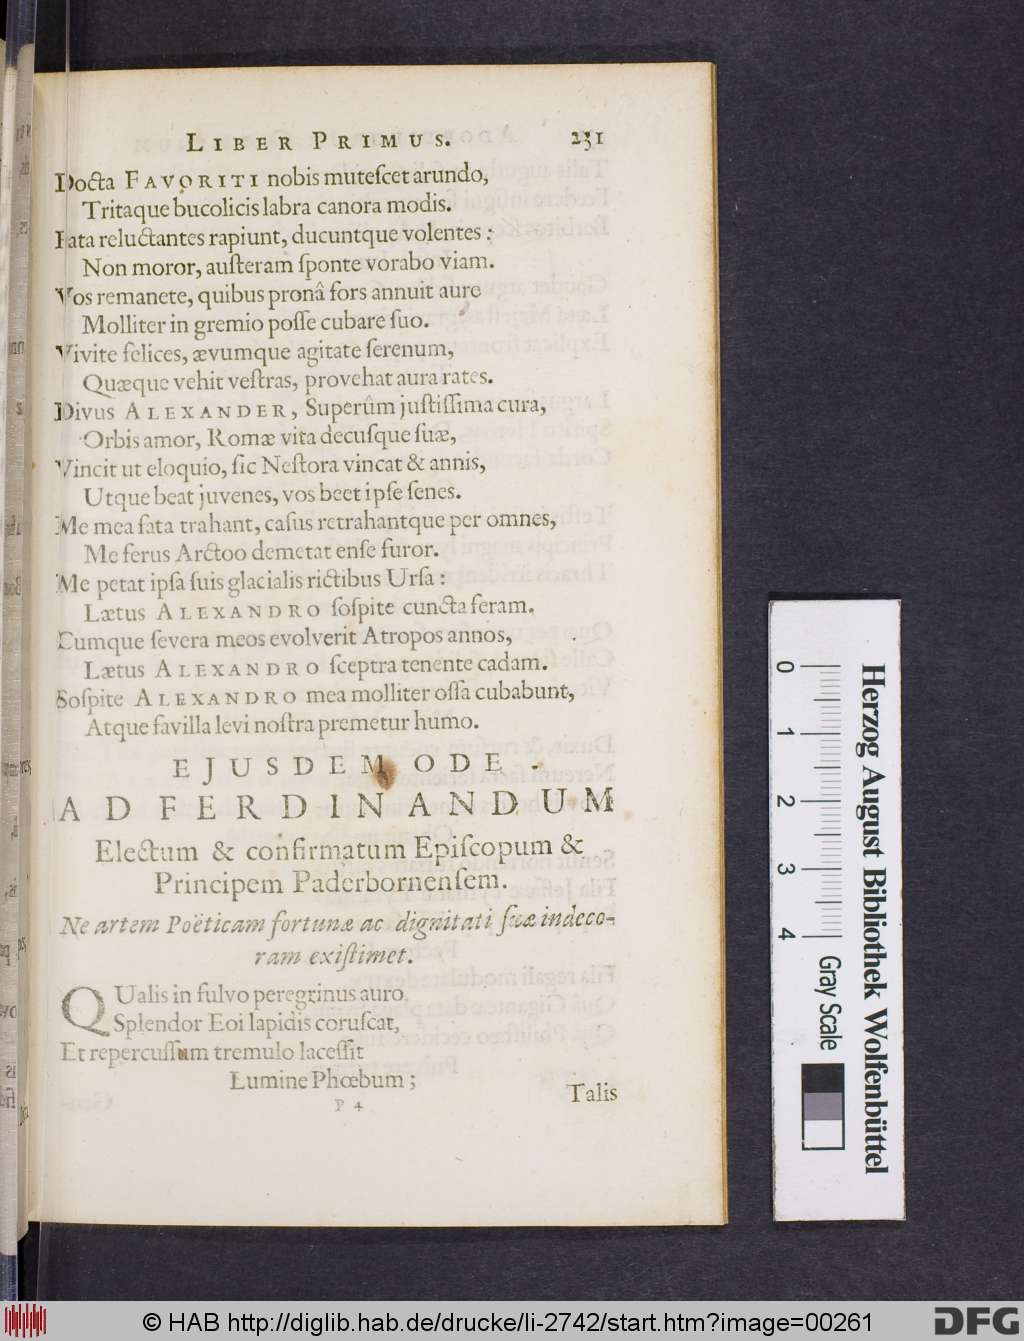 LIBER PRIMUS. 231
Docta FAVORITI nobis muteſcet arundo,
Tritaque bucolicis labra canora modis.
Fata reluctantes rapiunt, ducuntque volentes :
Non moror, auſteram ſponte vorabo viam.
Vos remanete, quibus pronâ fors annuit aure
Molliter in gremio poſſe cubare ſuo.
Vivite felices, ævumque agitate ſerenum,
Quæque vehit veſtras, provehat aura rates.
Divus ALEXANDER, Superûm juſtiſſima cura,
Orbis amor, Romæ vita decuſque ſuæ,
Vincit ut eloquio, ſic Neſtora vincat & annis,
Utque beat juvenes, vos beet ipſe ſenes.
Me mea fata trahant, caſus retrahantque per omnes,
Me ferus Arctoo demetat enſe furor.
Me petat ipſa ſuis glacialis rictibus Urſa :
Lætus ALEXANDRO ſoſpite cuncta feram.
Cumque ſevera meos evolverit Atropos annos,
Lætus ALEXANDRO ſceptra tenente cadam.
Soſpite ALEXANDRO mea molliter oſſa cubabunt,
Atque favilla levi noſtra premetur humo.
EJUSDEM ODE
AD FERDINANDUM
Electum & confirmatum Epiſcopum &
Principem Paderbornenſem.
Ne artem Poëticam fortunæ ac dignitati ſuæ indeco-
ram exiſtimet.
QUalis in fulvo peregrinus auro
Splendor Eoi lapidis coruſcat,
Et repercuſſum tremulo laceſſit
Lumine Phœbum ;
P 4 Talis
0 1 2 3 4
Gray Scale
Herzog August Bibliothek Wolfenbüttel
© HAB http://diglib.hab.de/drucke/li-2742/start.htm?image=00261
DFG